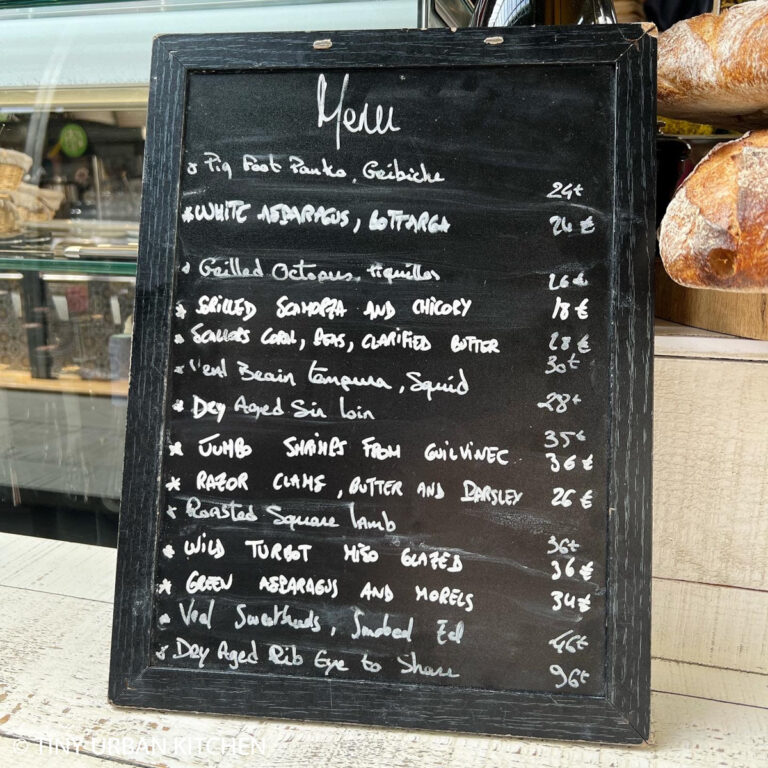 Menu
* Pig Foot Panko, Gribiche 24€
* WHITE ASPARAGUS, BOTTARGA 24€
* Grilled Octopus, tiquillos 26€
* GRILLED SCAMORZA AND CHICORY 18€
* SAILORS CORAL, PEAS, CLARIFIED BUTTER 28€
* Veal Brain tempura, Squid 30€
* Dry Aged Sir loin 28€
35€
* JUMBO SHRIMPS FROM GUILVINEC 36€
* RAZOR CLAMS, BUTTER AND PARSLEY 26€
* Roasted Square lamb 36€
* WILD TURBOT MISO GLAZED 36€
* GREEN ASPARAGUS AND MORELS 34€
* Veal Sweetbreads, Smoked Eel 46€
* Dry Aged Rib Eye to Share 96€
© TINY URBAN KITCHEN